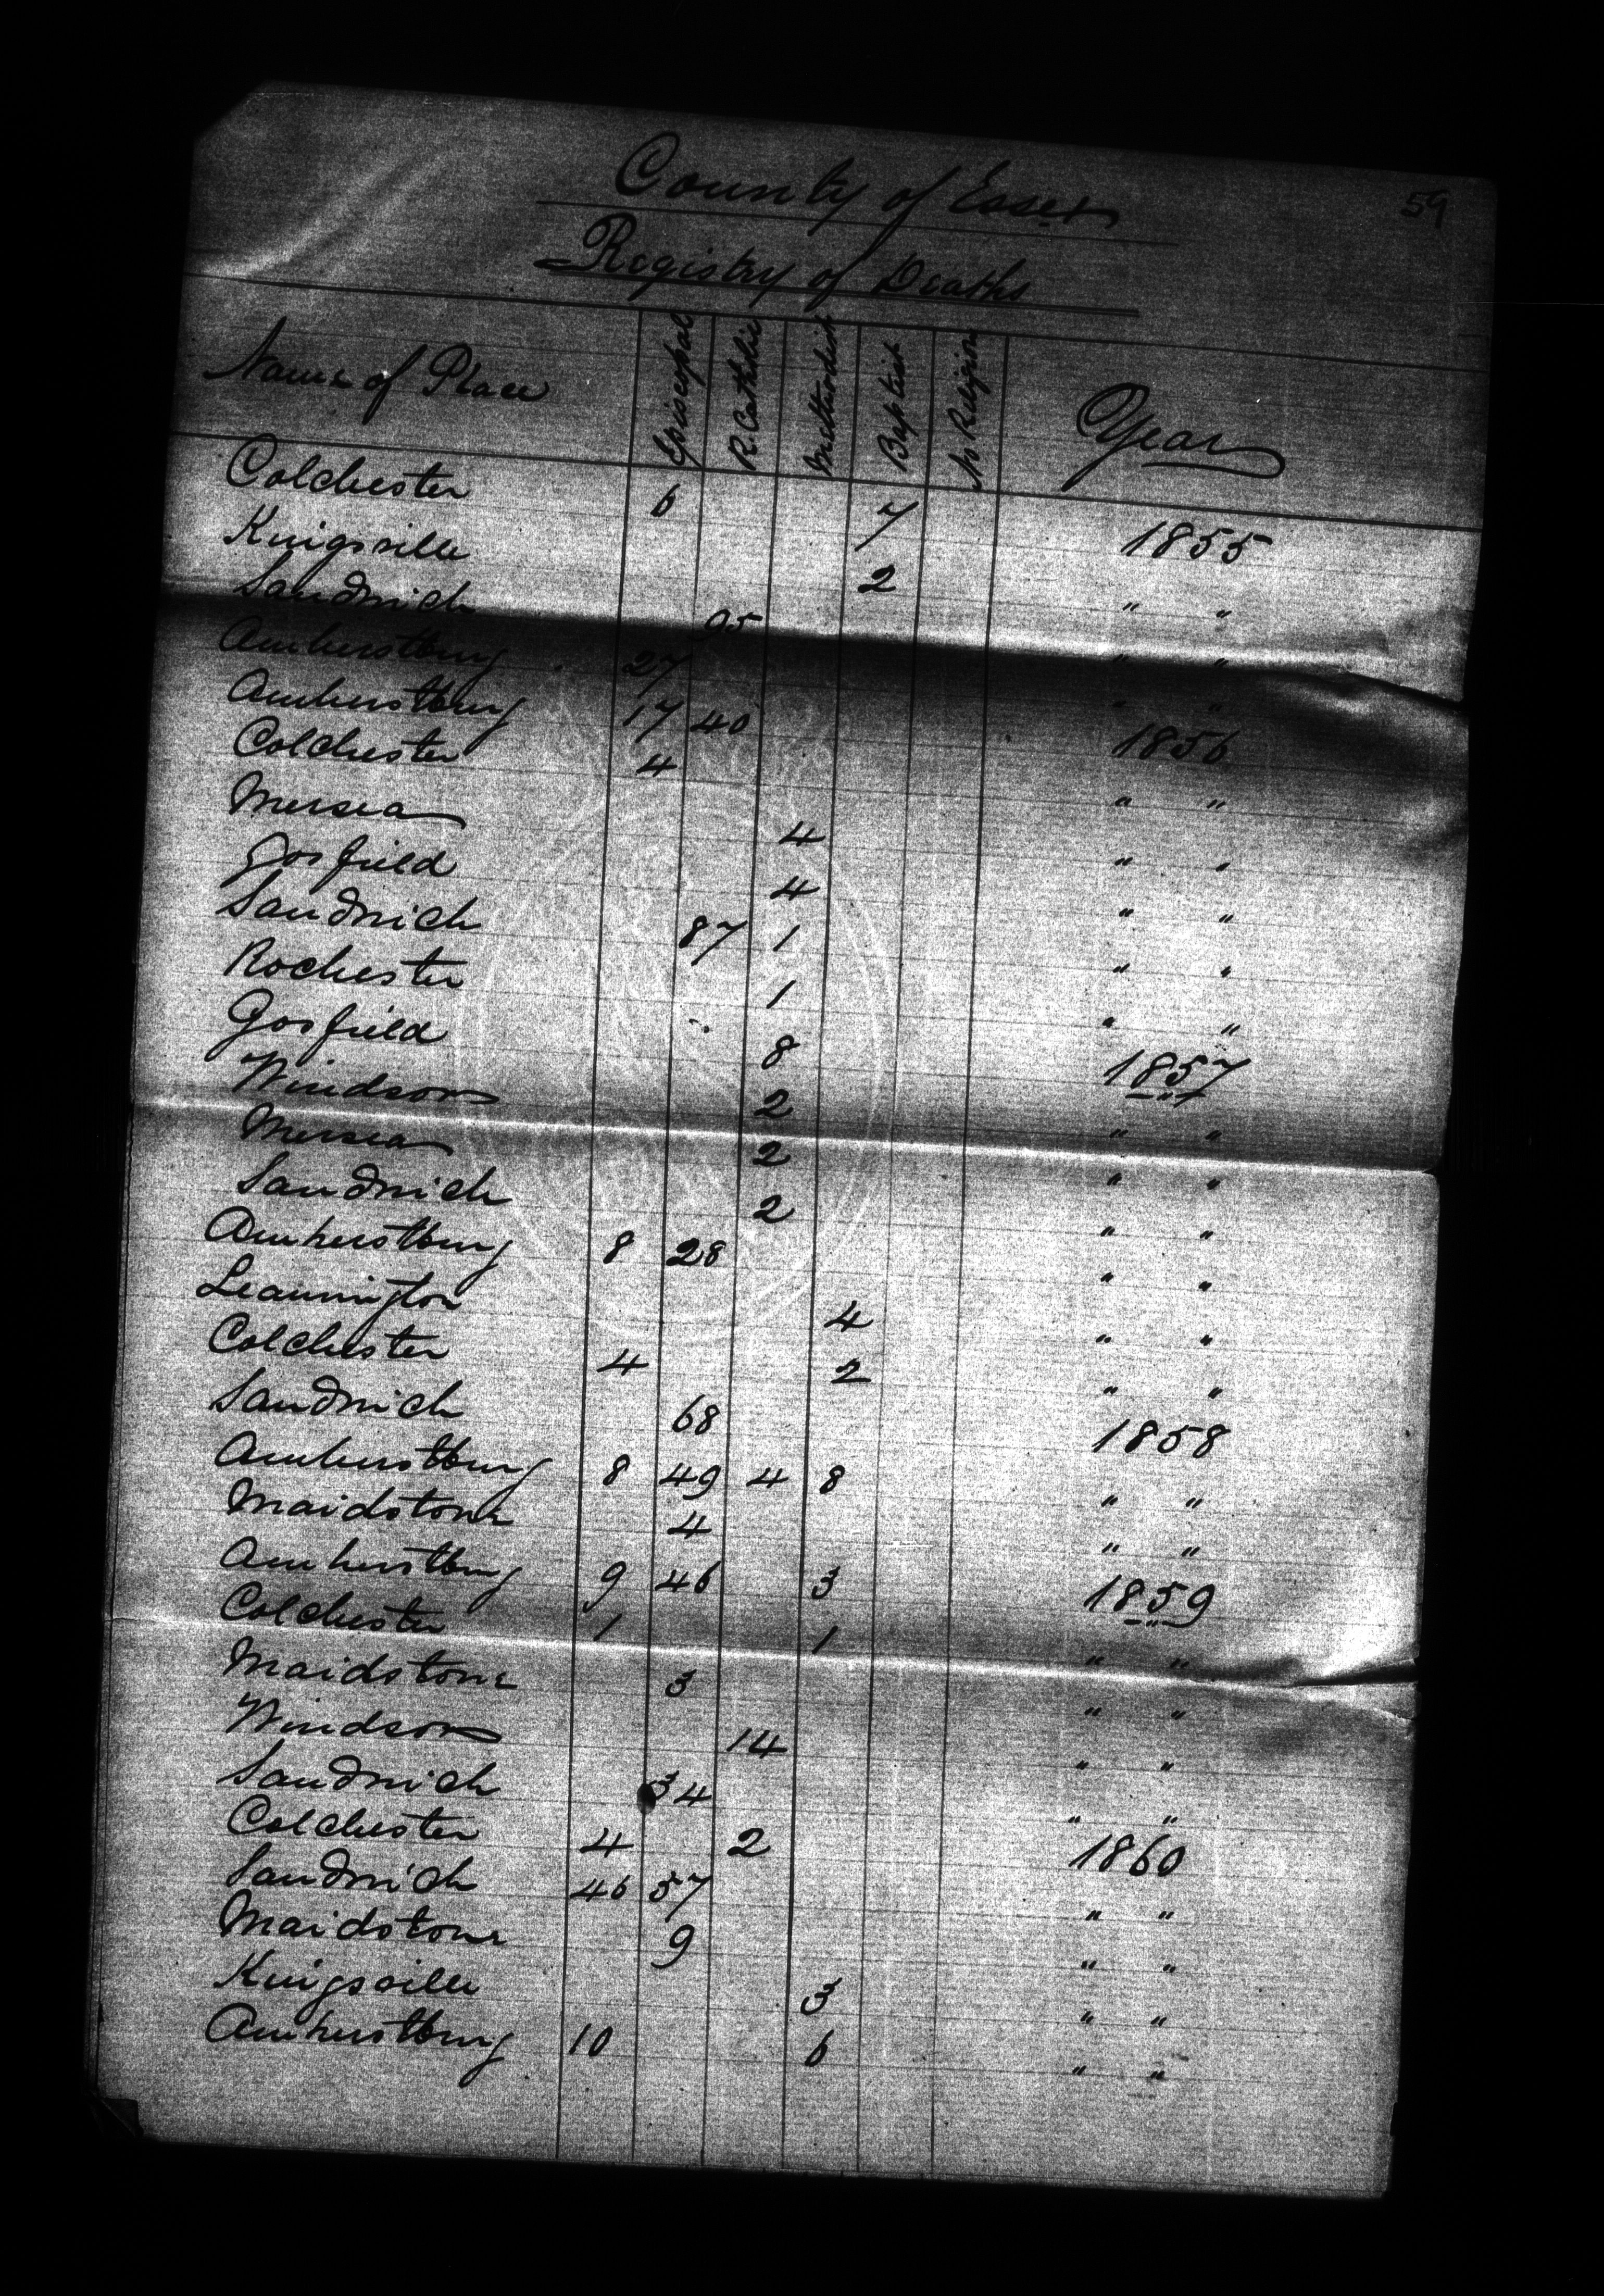 59
County of Essex
Registry of Deaths
Name of Place Episcopal R. Catholic Methodist Baptist No Religion Year
Colchester 6 7 1855
Kingsville 2 " "
Sandwich 95 " "
Amherstburg 27 " "
Amherstburg 17 40 1856
Colchester 4 " "
Mersea 4 " "
Gosfield 4 " "
Sandwich 87 1 " "
Rochester 1 " "
Gosfield 8 1857
Windsor 2 " "
Mersea 2 " "
Sandwich 2 " "
Amherstburg 8 28 " "
Leamington 4 " "
Colchester 4 2 " "
Sandwich 68 1858
Amherstburg 8 49 4 8 " "
Maidstone 4 " "
Amherstburg 9 46 3 1859
Colchester 1 1 " "
Maidstone 3 " "
Windsor 14 " "
Sandwich 34 " "
Colchester 4 2 1860
Sandwich 46 57 " "
Maidstone 9 " "
Kingsville 3 " "
Amherstburg 10 6 " "